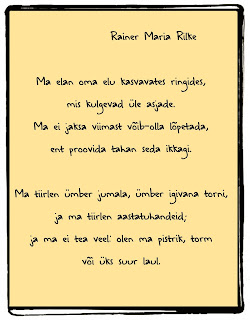 Rainer Maria Rilke
Ma elan oma elu kasvavates ringides,
mis kulgevad üle asjade.
Ma ei jaksa viimast võib-olla lõpetada,
ent proovida tahan seda ikkagi.
Ma tiirlen ümber jumala, ümber igivana torni,
ja ma tiirlen aastatuhandeid;
ja ma ei tea veel: olen ma pistrik, torm
või üks suur laul.